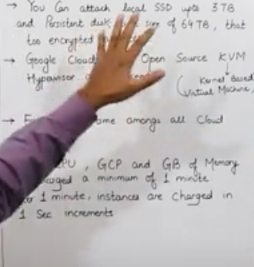 → You Can attach local SSD upto 3 TB
and Persistent disk size of 64 TB, that
too encrypted
→ Google Cloud Open Source KVM
Hypervisor
(Kernel Based
Virtual Machine)
→ among all Cloud
CPU, GCP and GB of Memory
a minimum of 1 minute.
1 minute, instances are charged in
1 Sec increments